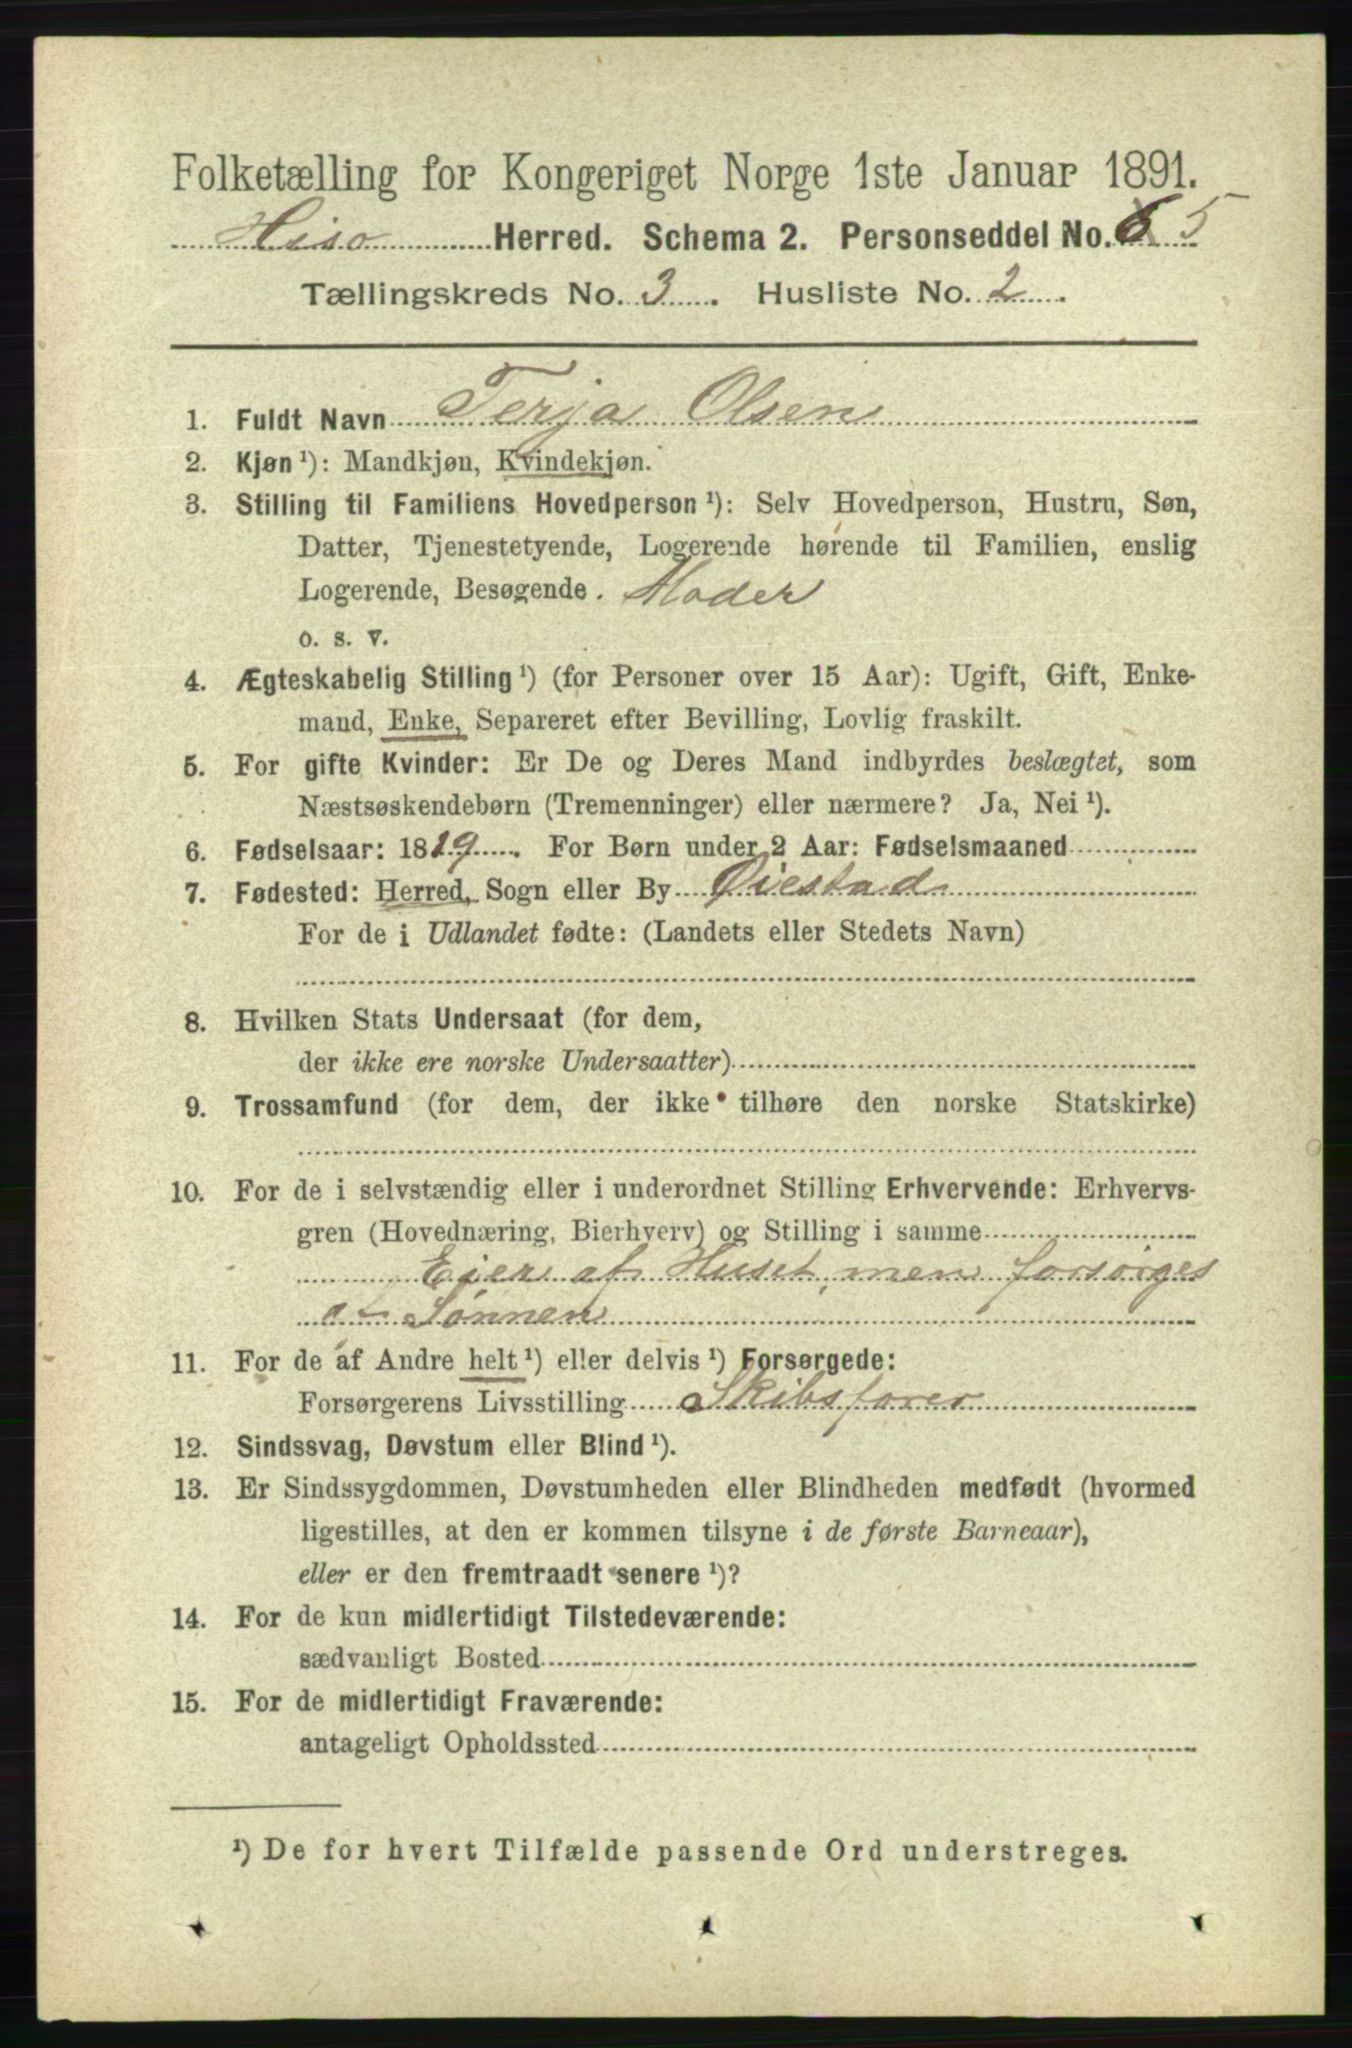 Folketælling for Kongeriget Norge 1ste Januar 1891.
Hisø Herred. Schema 2. Personseddel No. 6 5
Tællingskreds No. 3. Husliste No. 2.
1. Fuldt Navn Terja Olsen
2. Kjøn ¹): Mandkjøn, Kvindekjøn.
3. Stilling til Familiens Hovedperson ¹): Selv Hovedperson, Hustru, Søn,
Datter, Tjenestetyende, Logerende hørende til Familien, enslig
Logerende, Besøgende. Moder
o. s. v.
4. Ægteskabelig Stilling ¹) (for Personer over 15 Aar): Ugift, Gift, Enke-
mand, Enke, Separeret efter Bevilling, Lovlig fraskilt.
5. For gifte Kvinder: Er De og Deres Mand indbyrdes beslægtet, som
Næstsøskendebørn (Tremenninger) eller nærmere? Ja, Nei ¹).
6. Fødselsaar: 1819. For Børn under 2 Aar: Fødselsmaaned
7. Fødested: Herred, Sogn eller By Øiestad
For de i Udlandet fødte: (Landets eller Stedets Navn)
8. Hvilken Stats Undersaat (for dem,
der ikke ere norske Undersaatter)
9. Trossamfund (for dem, der ikke tilhøre den norske Statskirke)
10. For de i selvstændig eller i underordnet Stilling Erhvervende: Erhvervs-
gren (Hovednæring, Bierhverv) og Stilling i samme
Eier af Huset, men forsørges
af Sønnen
11. For de af Andre helt ¹) eller delvis ¹) Forsørgede:
Forsørgerens Livsstilling Skibsfører
12. Sindssvag, Døvstum eller Blind ¹).
13. Er Sindssygdommen, Døvstumheden eller Blindheden medfødt (hvormed
ligestilles, at den er kommen tilsyne i de første Barneaar),
eller er den fremtraadt senere ¹)?
14. For de kun midlertidigt Tilstedeværende:
sædvanligt Bosted
15. For de midlertidigt Fraværende:
antageligt Opholdssted
¹) De for hvert Tilfælde passende Ord understreges.